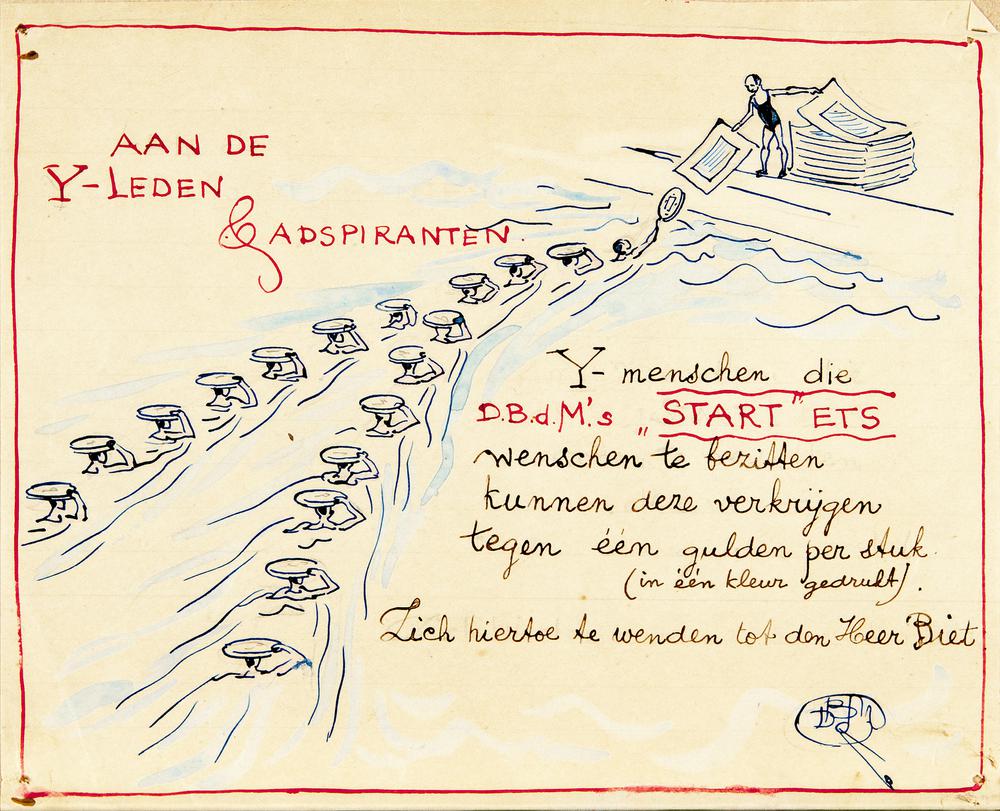 AAN DE
Y-LEDEN
& ADSPIRANTEN.
Y- menschen die
D.B.d.M.'s „START" ETS
wenschen te bezitten
kunnen deze verkrijgen
tegen één gulden per stuk.
(in één kleur gedrukt).
Zich hiertoe te wenden tot den Heer Biet